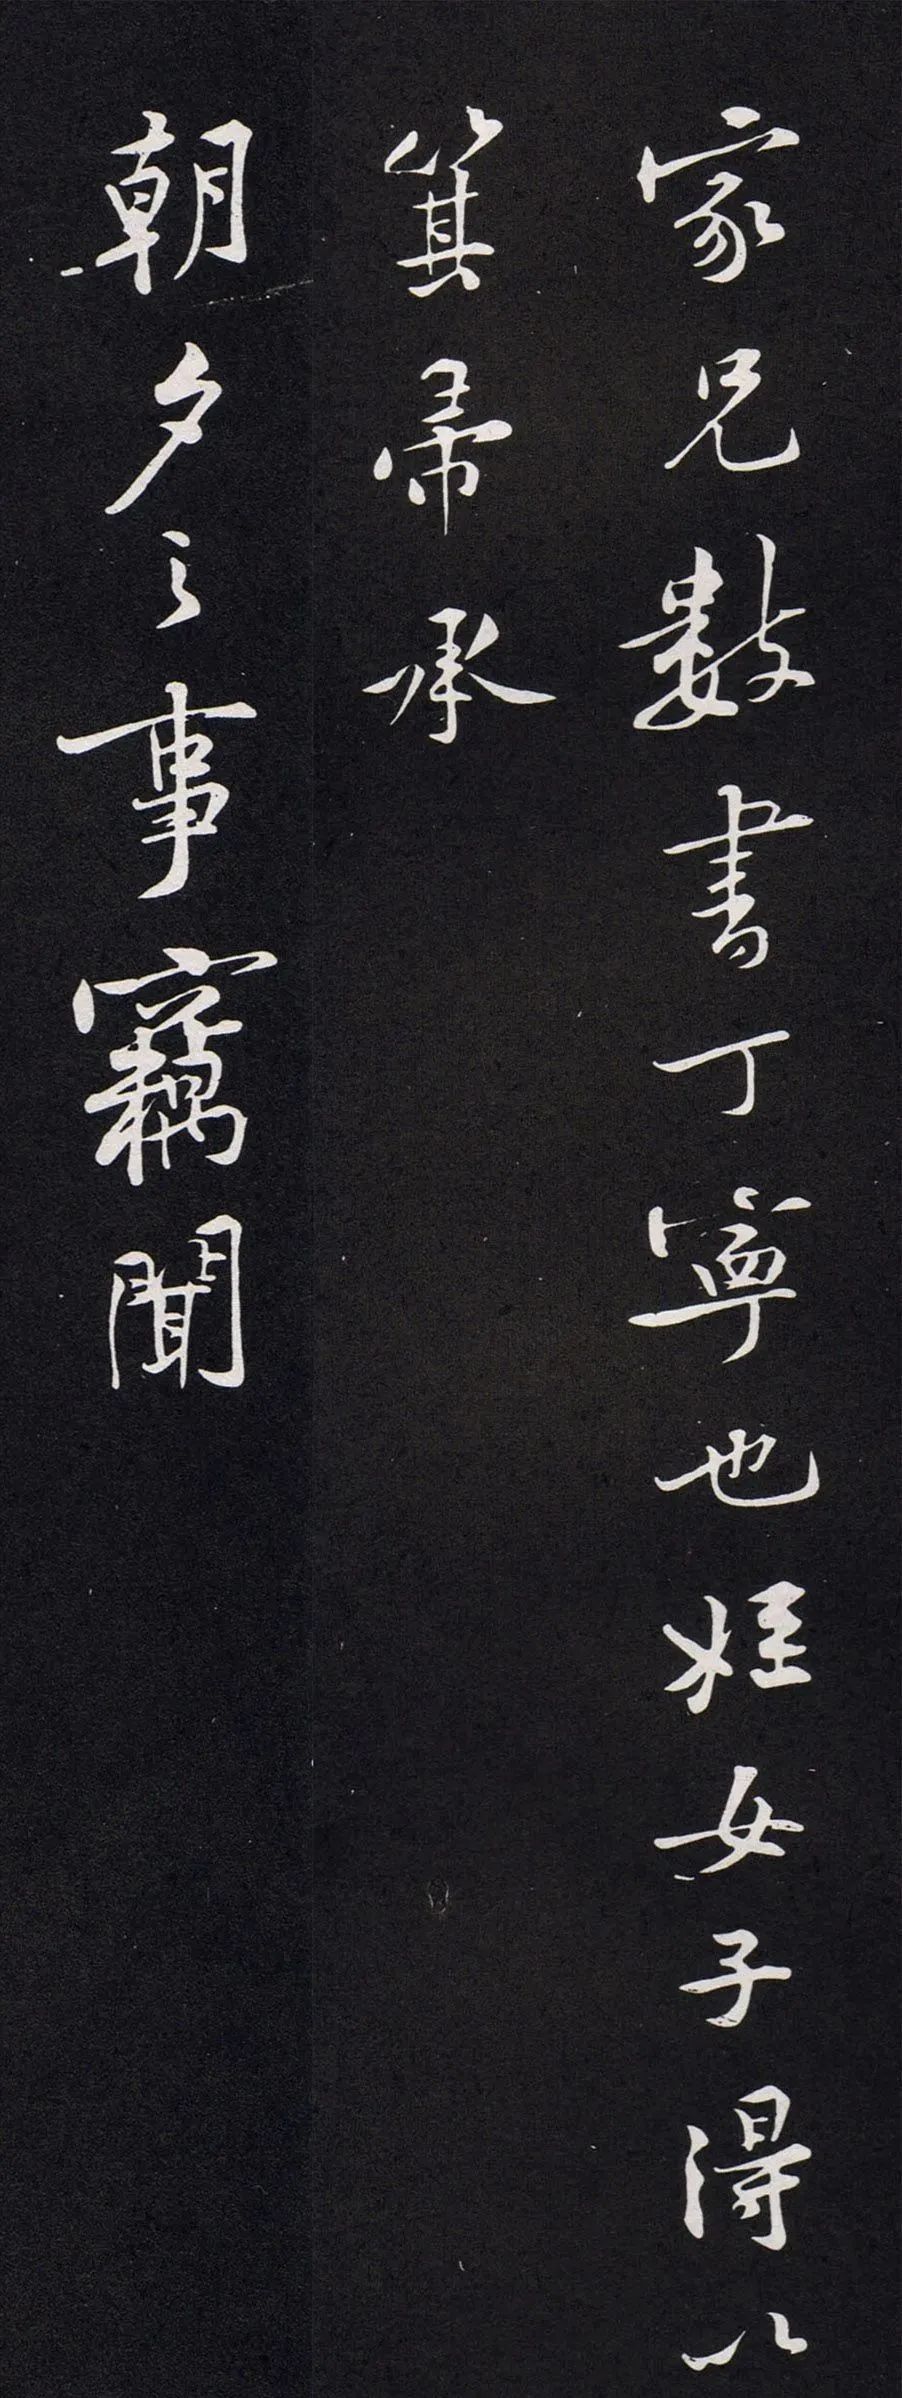 家兄數書丁寧也姪女子得以
箕帚承
朝夕之事竊聞